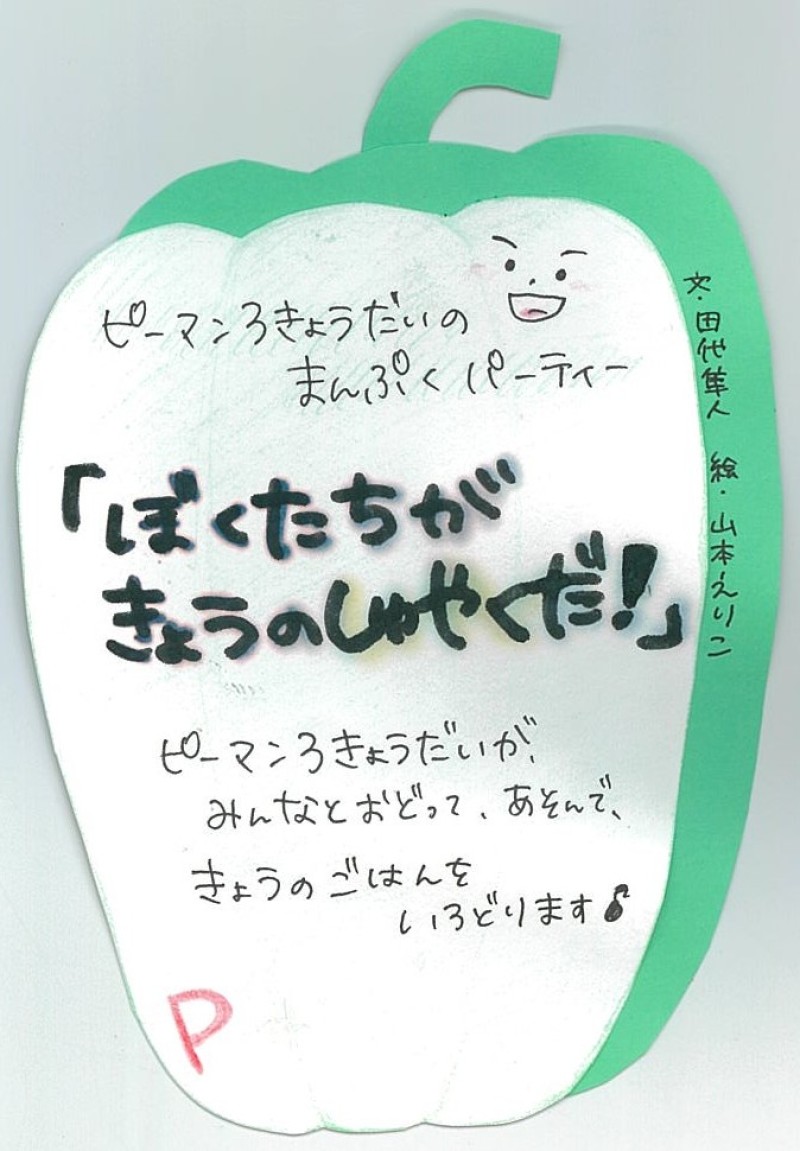 ピーマン3きょうだいの
まんぷくパーティー
「ぼくたちが
きょうのしゅやくだ!」
ピーマン3きょうだいが、
みんなとおどって、あそんで、
きょうのごはんを
いろどります♪
P
文・田代隼人 絵・山本えりこ